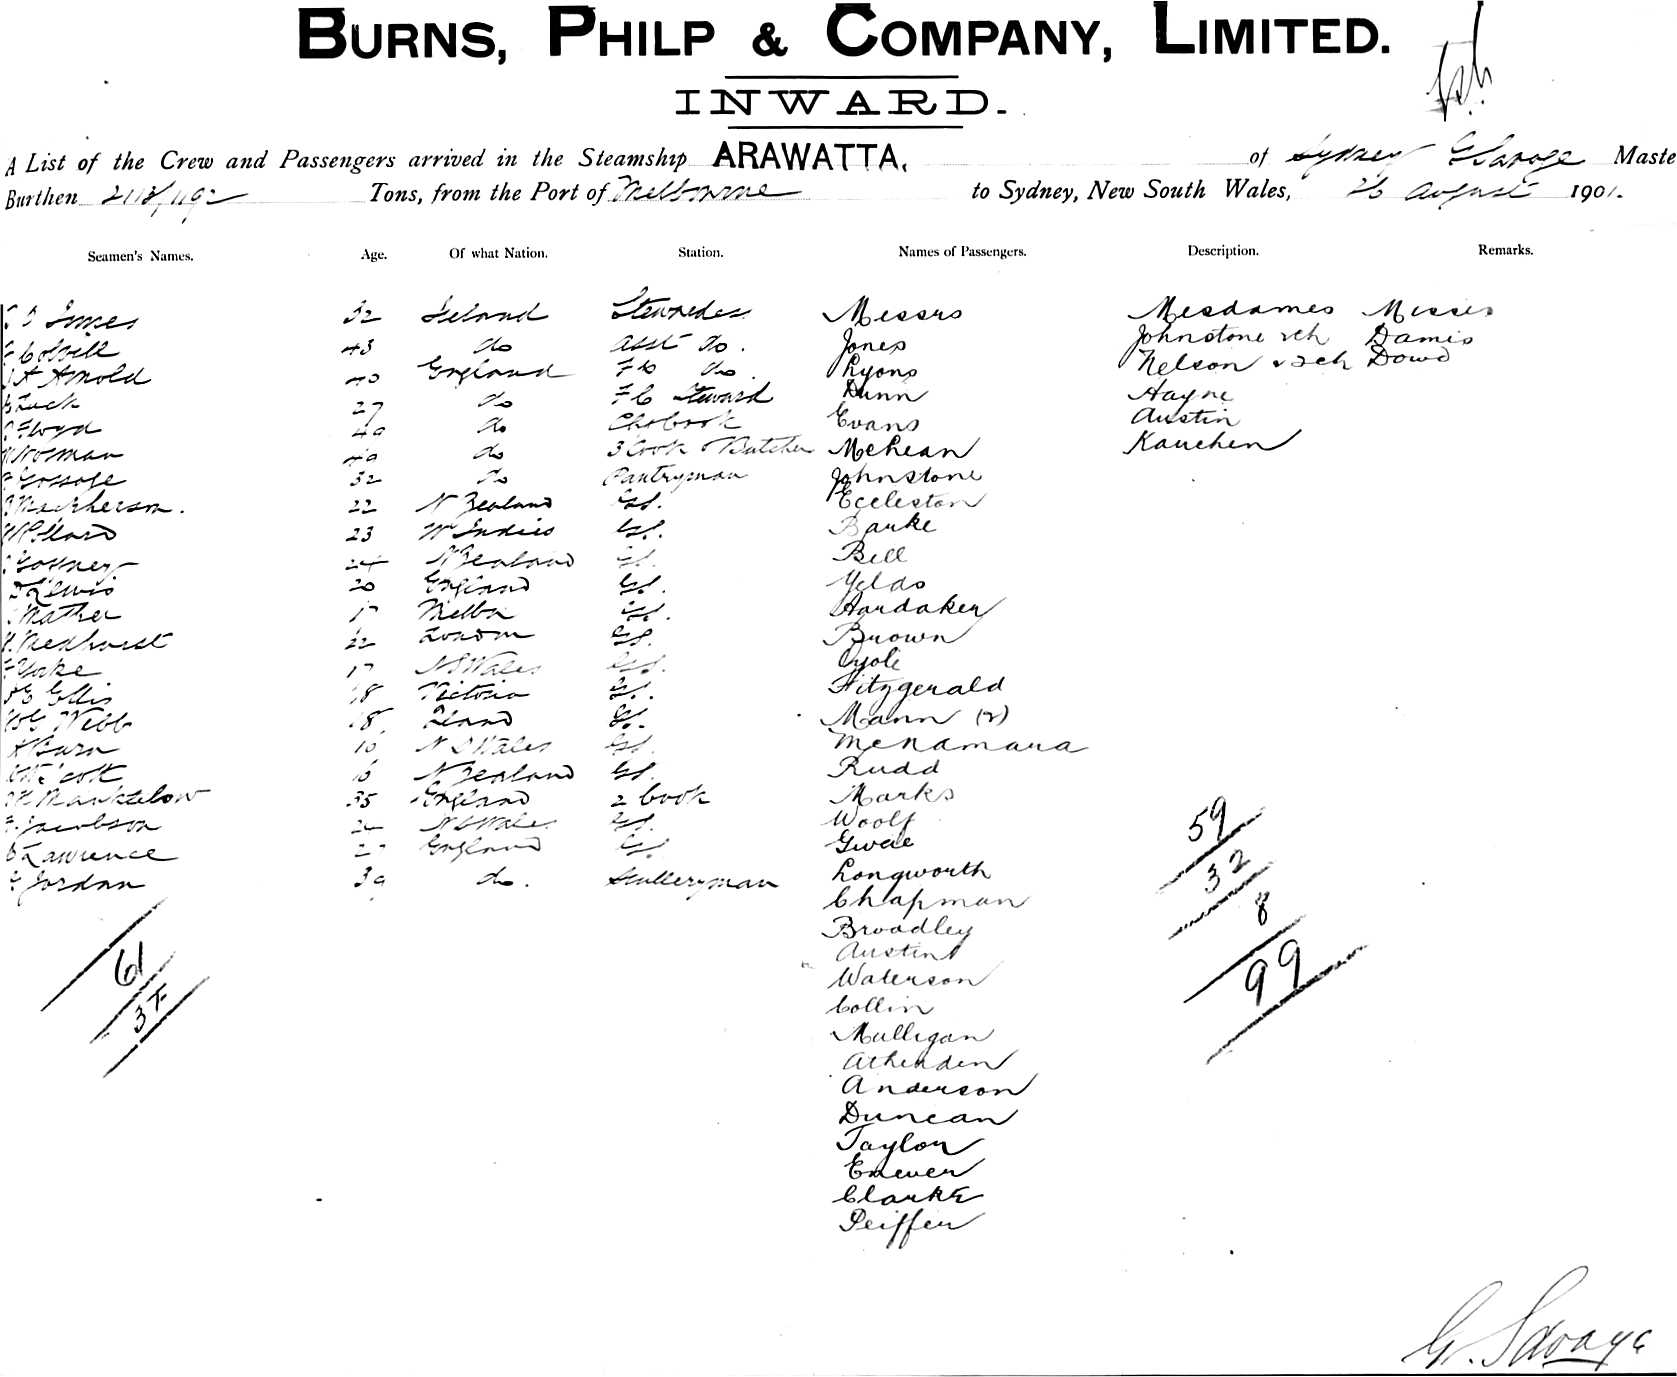 BURNS, PHILP & COMPANY, LIMITED.
INWARD.
A List of the Crew and Passengers arrived in the Steamship ARAWATTA, of Sydney G Savage Maste
Burthen 2118/1192 Tons, from the Port of Melbourne to Sydney, New South Wales, 26 August 1901.
Seamen's Names. Age. Of what Nation. Station. Names of Passengers. Description. Remarks.
Innes 32 Ireland Stewardess Messrs Mesdames Misses
Colvill 43 do asst do. Jones Johnstone & ch Damis
Arnold 40 England F C do Lyons Nelson & 2ch Dowd
Luck 27 do F C Steward Dunn Hayne
Floyd 40 do Ch Cook Evans Austin
Norman 40 do 3 Cook & Butcher McLean Kauchen
Gossage 32 do Pantryman Johnstone
Macpherson. 22 N Zealand Gs. Eccleston
Pollard 23 W Indies Gs. Barke
N Zealand Gs. Bell
Lewis 20 England Gs. Yelds
Mather 17 Melbn Gs. Hardaker
Medhurst 22 London Gs. Brown
Yorke 17 N S Wales Gs. Cyole
Ellis 18 Victoria Gs. Fitzgerald
Webb 18 Gs. Mann (2)
Burn 16 N S Wales Gs. McNamara
Scott 16 N Zealand Gs. Rudd
Manktelow 35 England 2 Cook Marks
Jacobson N S Wales Gs. Woolf
Lawrence England Gs. Gwae
Jordan 39 do. Sculleryman Longworth
Chapman
Broadley
Austin
Waterson
Collin
Mulligan
Athenden
Anderson
Duncan
Taylor
Enever
Clarke
Peiffer
61
37
59
32
8
99
G. Savage